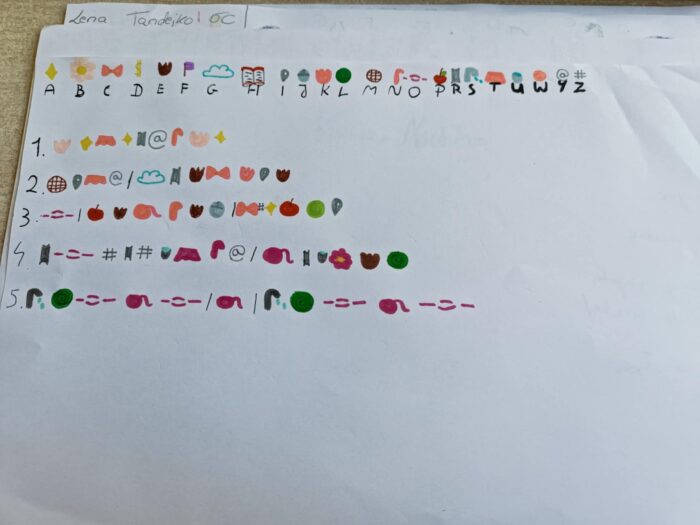 Lena Tandejko 6C
@ #
A B C D E F G H I J K L M N O P R S T U W Y Z
1. @
2. @ /
3. / / #
4. # # @ /
5. / /